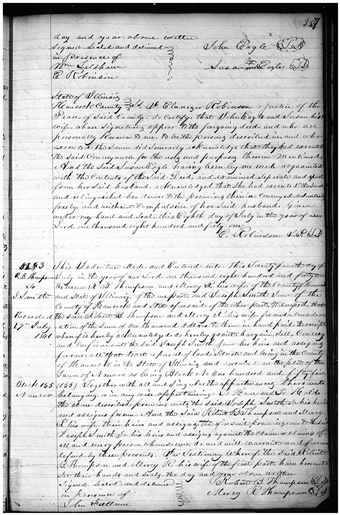 357
day and year above written
Signed Sealed and delivered
in presence of
John Eagle
Wm
Susan Eagle
E Robinson
State of Illinois
Hancock County I Ebenezer Robinson a Justice of the
Peace of Said County do Certify that John Eagle and Susan his
wife whose Signatures appear to the foregoing deed and who are
personally known to me to be the persons described in and who
executed the Same did Severally acknowledge that they had executed
the Said Conveyance for the uses and purposes therein mentioned
And the Said Susan Eagle having been by me made acquainted
with the Contents of the Said Deed and examined Separate and apart
from her Said husband acknowledged that She had executed the Same
and relinquished her dower to the premises therein Conveyed
freely and without Compulsion of her Said husband Given
under my hand and Seal this Eighth day of July in the year of our
Lord one thousand eight hundred and forty one
E. Robinson J.P.
This Indenture Made and Entered into This Twenty day of
R.B. Thompson
July in the year of our Lord one thousand eight hundred and forty
to
Robert B. Thompson and Mercy R his wife of the County of
J Smith
and State of Illinois of the one part and Joseph Smith of the
County of Hancock and State of the other part
Recorded
the Said Robert B. Thompson and Mercy R his wife for and in consider
17 July
ation of the Sum of one hundred dollars to them in hand paid the receipt
1841
whereof is hereby acknowledged do hereby grant bargain Sell Convey
and Confirm unto the Said Joseph Smith his heirs and assigns
forever all that tract or parcel of land Situate and being in the County
of Hancock in the State of Illinois and
Town of Nauvoo as being Block one hundred and fifty five
Block 155
(155) Together with all and Singular the appurtenances
Nauvoo
belonging or in any wise appertaining To Have and To Hold
the above described premises unto the Said Joseph Smith his heirs
and assigns forever And the Said Robert B Thompson and Mercy
R his wife their heirs and assigns the aforesaid premises unto the Said
Joseph Smith his heirs and assigns against the claim of
all and every person whomsoever do and will warrant and forever
defend by these presents In Testimony whereof the Said Robert
B Thompson and Mercy R his wife of the first part have hereunto
Set their hands and Seals the day and year above written
Signed Sealed and delivered
Robert B Thompson
in presence of
Mercy R Thompson
John